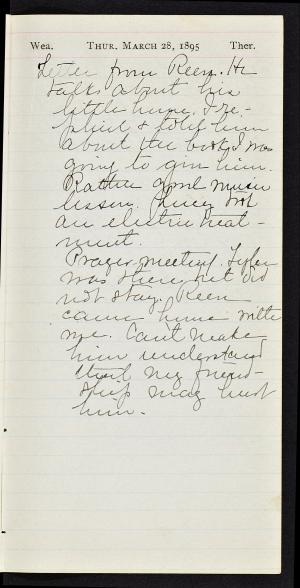 Wea. THUR. MARCH 28, 1895 Ther.
Letter from Keen. He
talks about his
little home. I re-
plied & told him
about the book I was
going to give him.
Rather good music
lesson. Lucy took
an electric treat-
ment.
Prayer meeting. Tyler
was there but did
not stay. Keen
came home with
me. Can't make
him understand
that my friend-
ship may hurt
him.